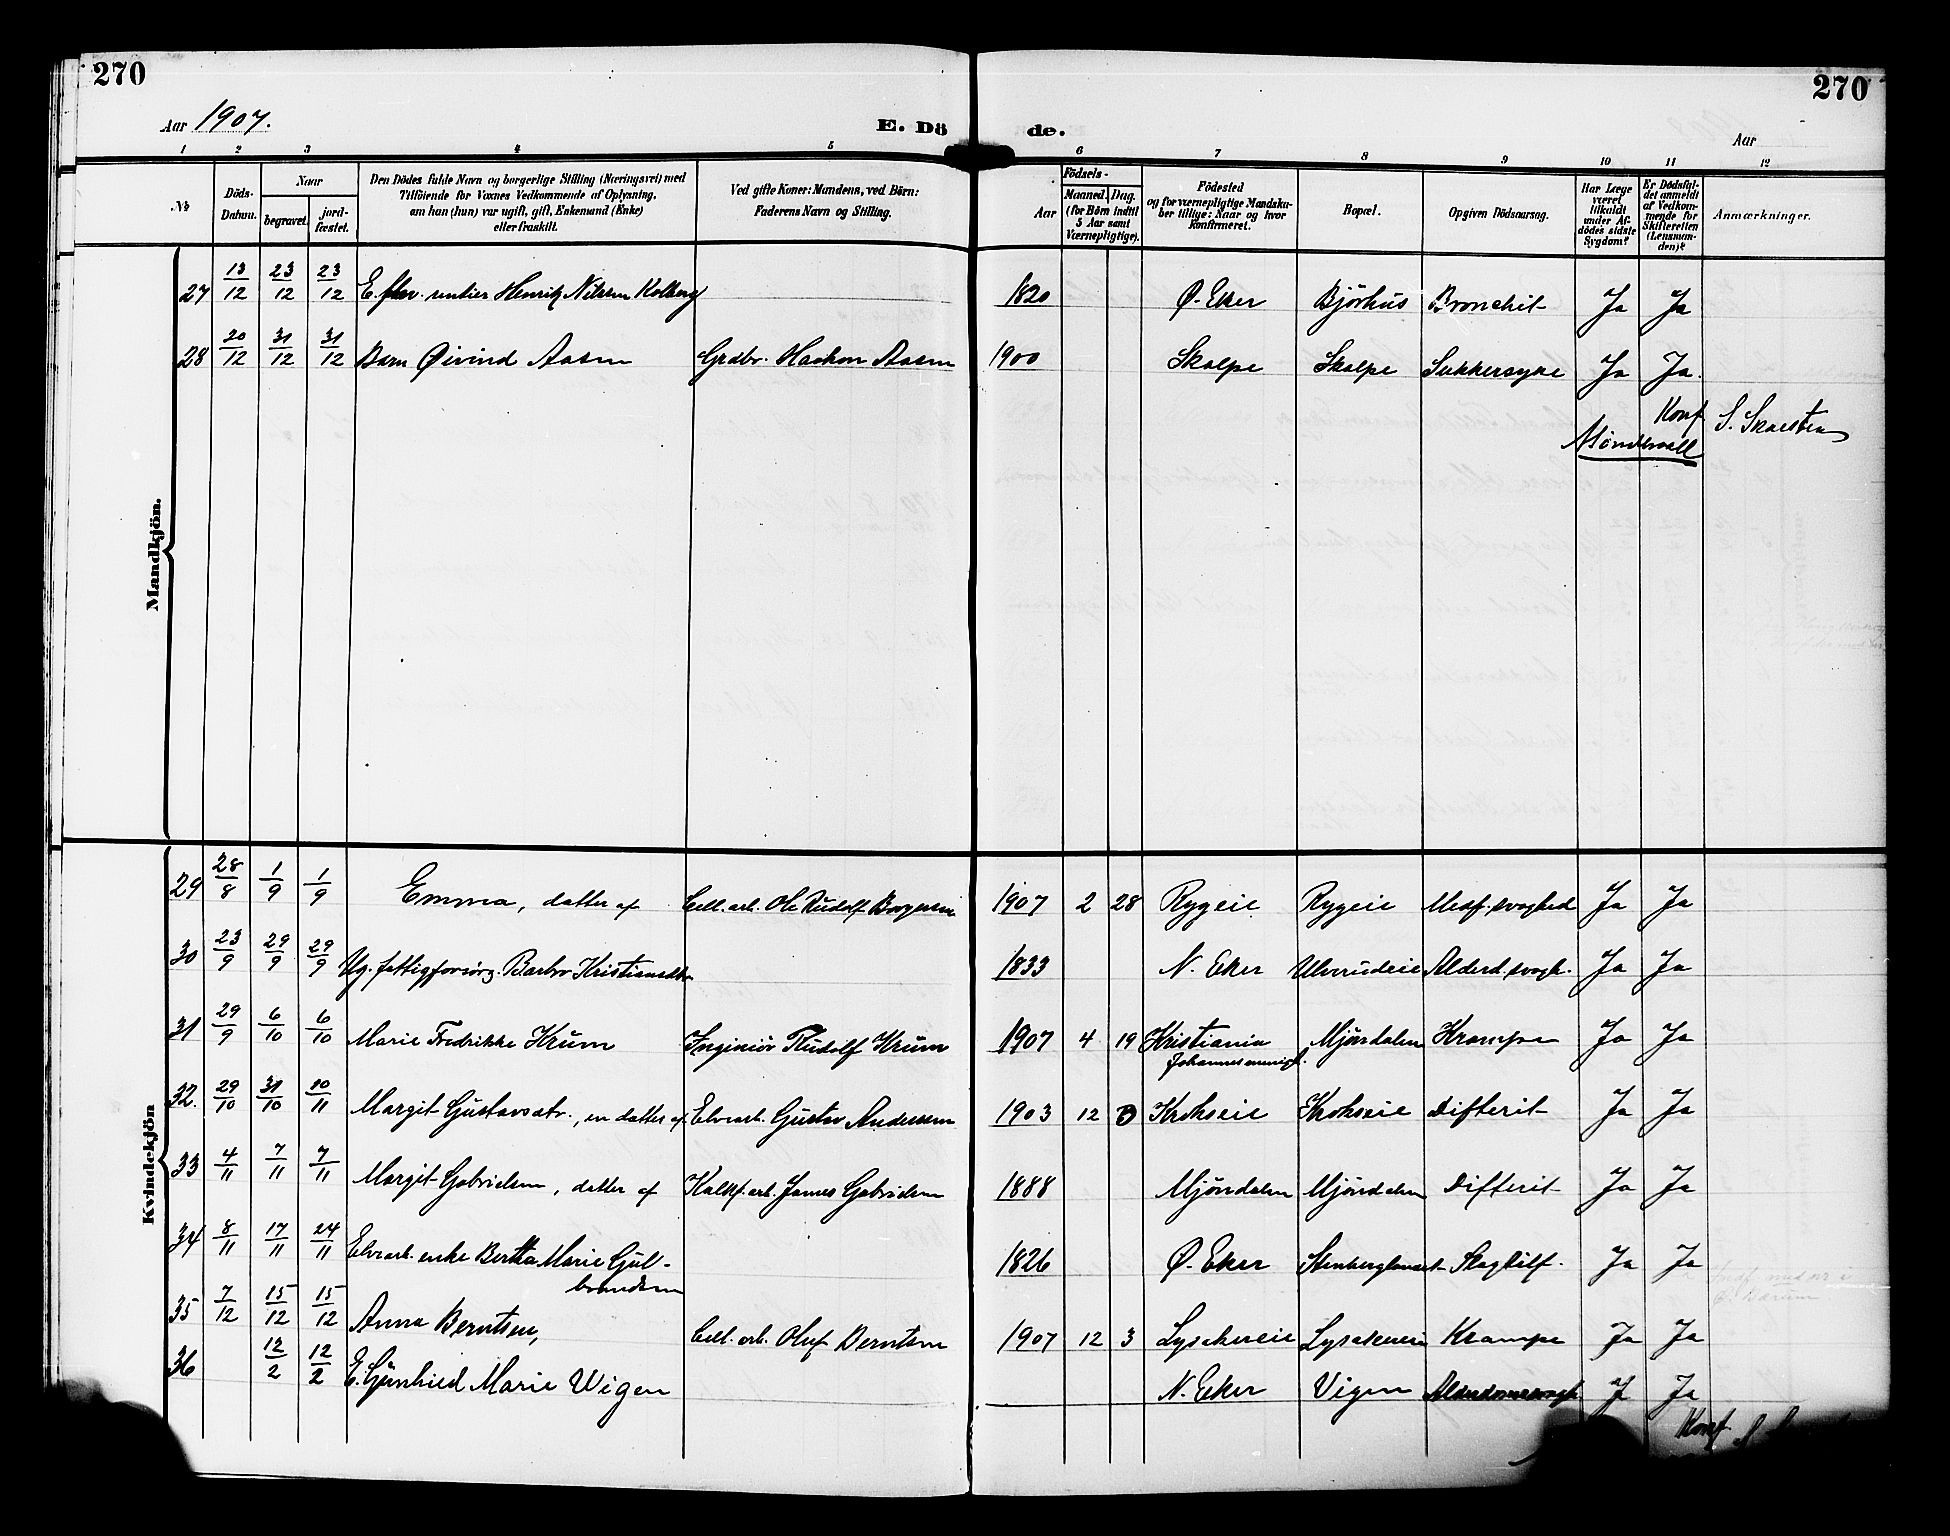 270
270
Aar 1907.
E. Dö
de.
Aar
1 2 3 4 5 6 7 8 9 10 11 12
№
Döds-
Datum.
Naar
begravet.
jord-
fæstet.
Den Dödes fulde Navn og borgerlige Stilling (Næringsvei) med
Tilföiende for Voxnes Vedkommende af Oplysning,
om han (hun) var ugift, gift, Enkemand (Enke)
eller fraskilt.
Ved gifte Koner: Mandens, ved Börn:
Faderens Navn og Stilling.
Födsels-
Aar
Maaned. Dag.
(for Börn indtil
5 Aar samt
Værnepligtige).
Födested
og for værnepligtige Mandska-
ber tillige: Naar og hvor
konfirmeret.
Bopæl.
Opgiven Dödsaarsag.
Har Læge
været
tilkaldt
under Af-
dödes sidste
Sygdom?
Er Dödsfal-
det anmeldt
af Vedkom-
mende for
Skifteretten
(Lensman-
den)?
Anmærkninger.
Mandkjön.
27 13/12 23/12 23/12 E. rentier Henrik Nilssen Kolberg 1820 Ø. Eker Bjørhus Bronchit Ja Ja
28 20/12 31/12 31/12 Barn Øivind Aasen Grdbr. Haakon Aasen 1900 Skalpe Skalpe Sukkersyke Ja Ja.
Konf. S. Skaesten
Kvindekjön
29 28/8 1/9 1/9 Emma, datter af Cell. arb. Ole Rudolf Borgersen 1907 2 28 Rygeie Rygeie Medf. svaghed Ja Ja
30 23/9 29/9 29/9 Ug. fattigforsörg. Barbro Kristiansdtr 1833 N. Eker Ulverudeie Alderd. svagh. Ja Ja
31 29/9 6/10 6/10 Marie Fredrikke Krüm Ingeniör Rudolf Krüm 1907 4 19 Kristiania Mjöndalen Krampe Ja Ja
Johannes menigh.
32. 29/10 31/10 10/11 Margit Gustavsdtr., en datter af Elvearb. Gustav Andersen 1903 12 8 Krokseie Krokseie Difterit Ja Ja
33 4/11 7/11 7/11 Margit Gabrielsen, datter af Kalkf. arb. James Gabrielsen 1888 Mjöndalen Mjöndalen Difterit Ja Ja
34 8/11 17/11 24/11 Elvearb. enke Bertha Marie Gul-
brandsen 1826 Ø. Eker Stenberglauset Slagtilf. Ja Ja
35 7/12 15/12 15/12 Anna Berntsen, Cell. arb. Oluf Berntsen 1907 12 3 Lysakereie Lysakereie Krampe Ja Ja
36 12/2 12/2 E. Gunhild Marie Wigen N. Eker Vigen Alderdomssvagh. J Ja
Konf.